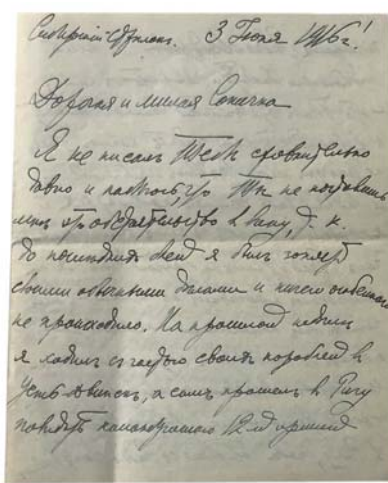 Сибирскій Стрѣлокъ. 3 Іюня 1916 г.
Дорогая и милая Сонечка
Я не писалъ Тебѣ сравнительно
давно и надѣюсь, что Ты не поставишь
мнѣ это обстоятельство въ вину, т. к.
до послѣднихъ дней я былъ занятъ
своими обычными дѣлами и ничего особеннаго
не происходило. На прошлой недѣлѣ
я ходилъ съ частью своихъ кораблей въ
Усть-Двинскъ, а самъ прошелъ въ Ригу
повидать командующаго 12-ой арміей